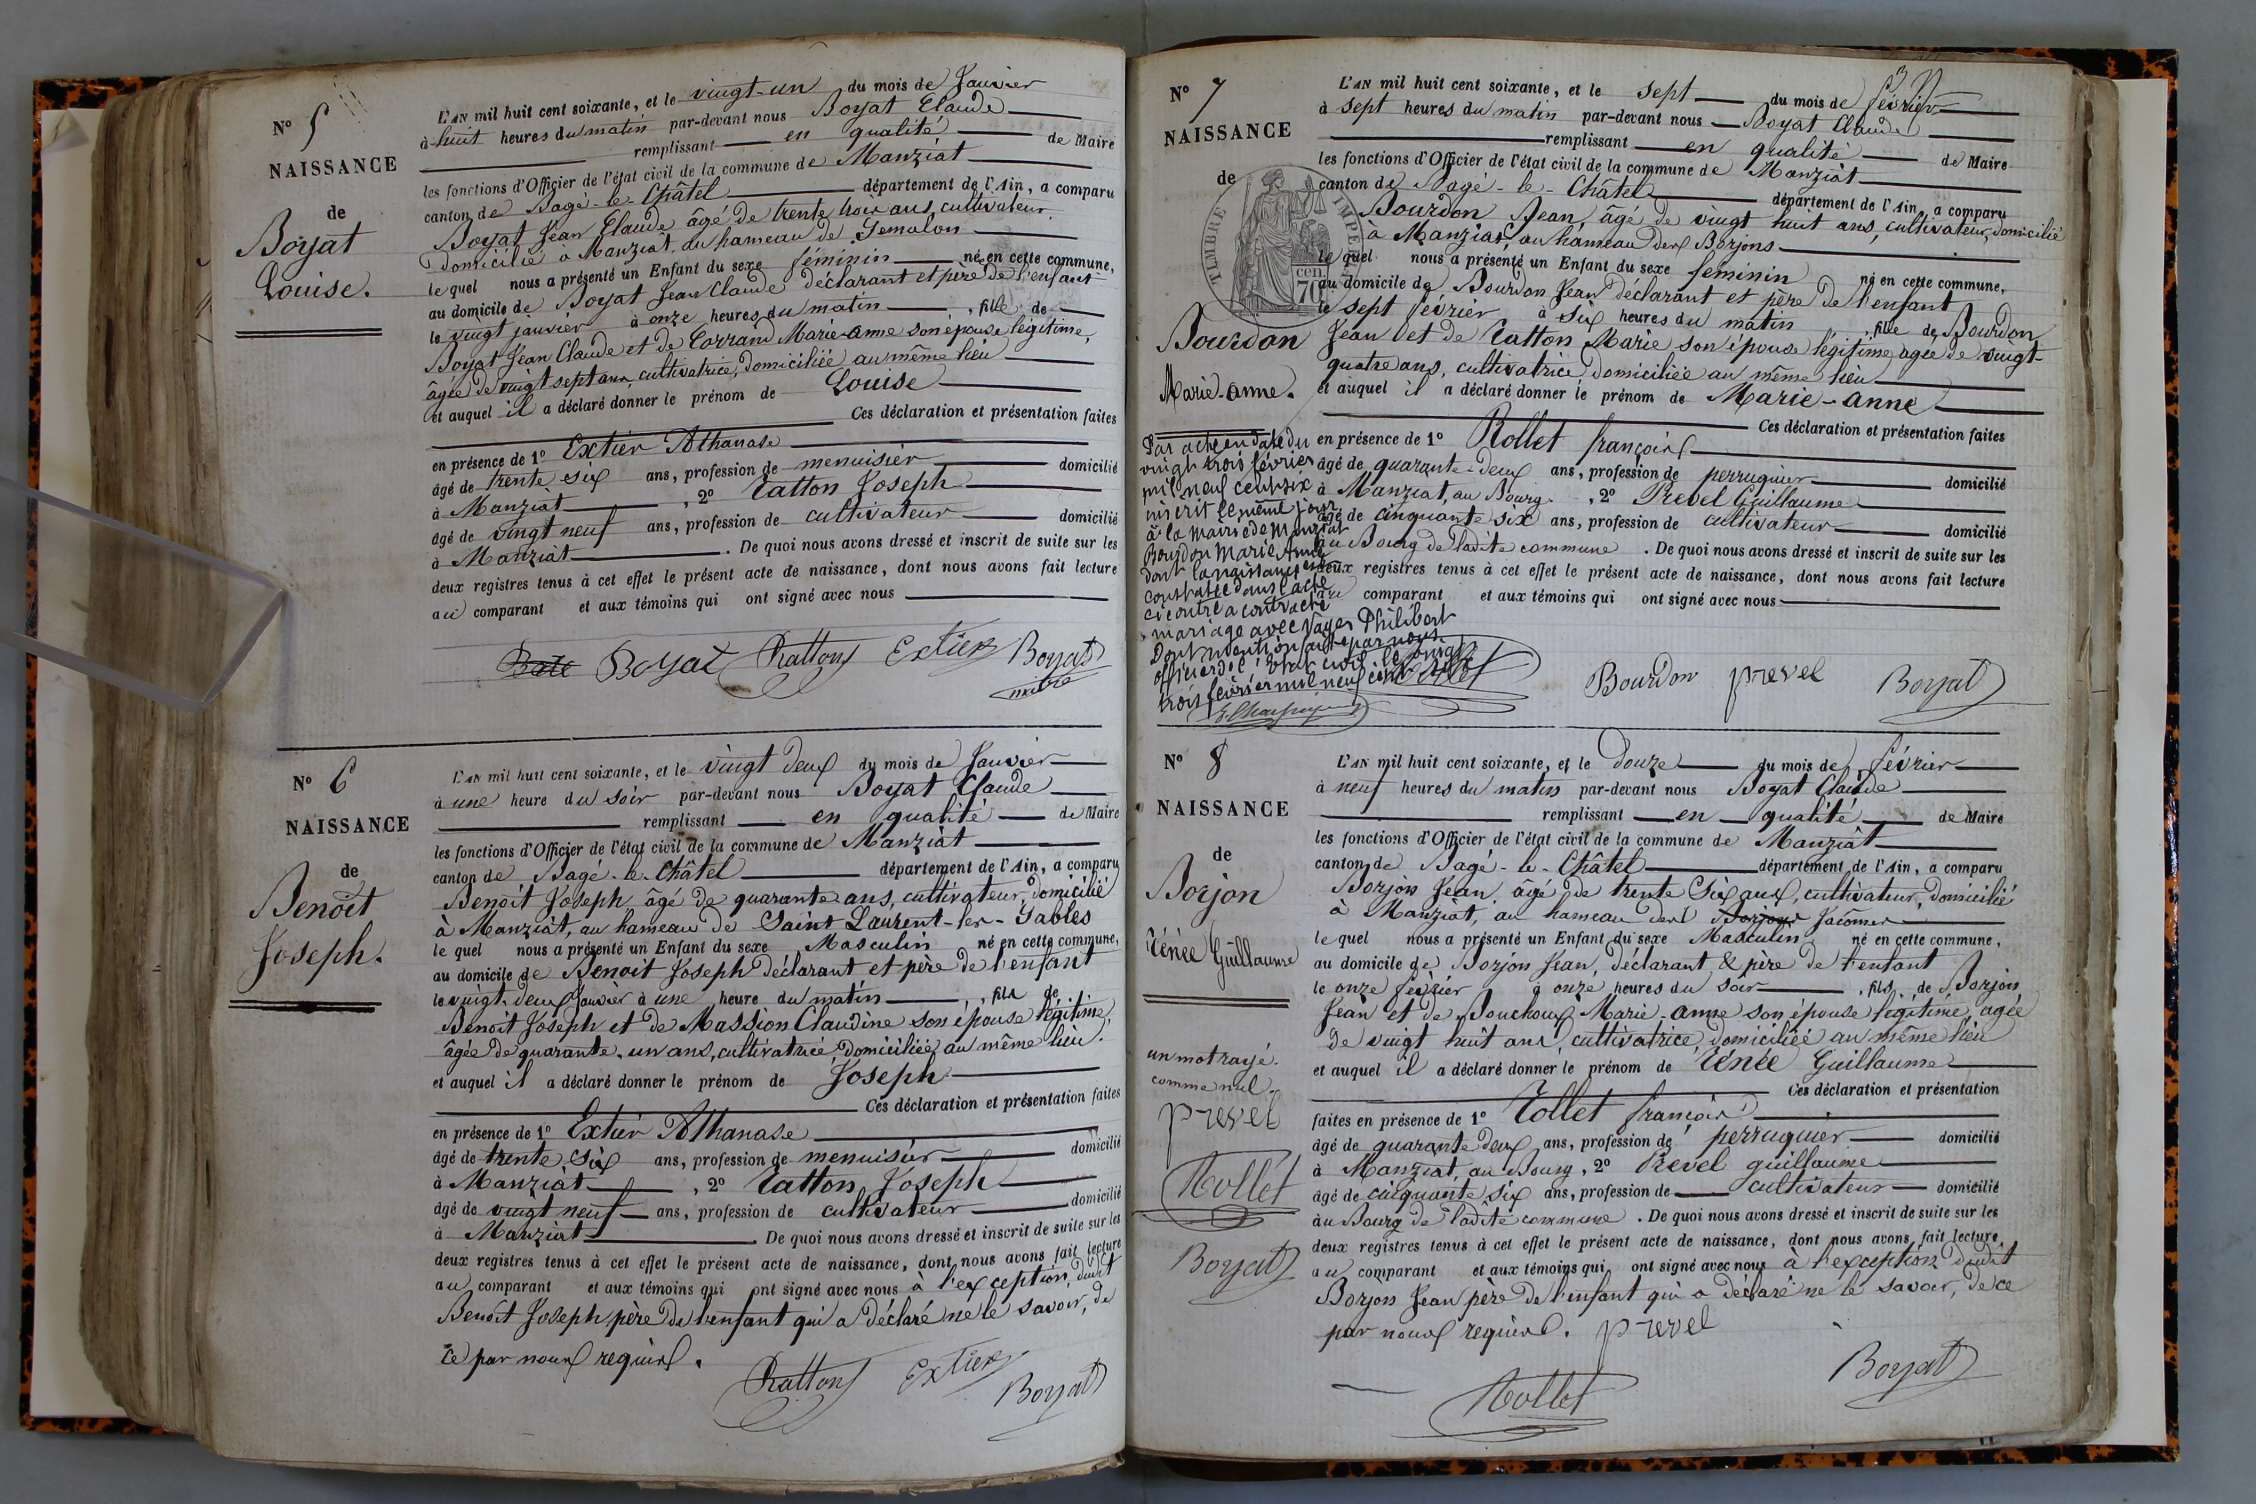 N° 5
NAISSANCE
de
Boyat
Louise.
L'AN mil huit cent soixante, et le vingt-un du mois de Janvier
à huit heures du matin par-devant nous Boyat Claude
remplissant en qualité de Maire
les fonctions d'Officier de l'état civil de la commune de Manziat
canton de Bagé-le-Châtel département de l'Ain, a comparu
Boyat Jean Claude âgé de trente trois ans, cultivateur
domicilié à Manziat au hameau de Semalon
le quel nous a présenté un Enfant du sexe féminin né en cette commune,
au domicile de Boyat Jean Claude déclarant et père de l'enfant
le vingt janvier à onze heures du matin, fille de
Boyat Jean Claude et de Corrand Marie-anne son épouse légitime,
âgée de vingt sept ans, cultivatrice, domiciliée au même lieu
et auquel il a déclaré donner le prénom de Louise
Ces déclaration et présentation faites
en présence de 1° Extier Athanase
âgé de trente six ans, profession de menuisier domicilié
à Manziat, 2° Ratton Joseph
âgé de vingt neuf ans, profession de cultivateur domicilié
à Manziat. De quoi nous avons dressé et inscrit de suite sur les
deux registres tenus à cet effet le présent acte de naissance, dont nous avons fait lecture
au comparant et aux témoins qui ont signé avec nous
Boyat Ratton Extier Boyat
maire
N° 6
NAISSANCE
de
Benoît
Joseph.
L'AN mil huit cent soixante, et le vingt deux du mois de Janvier
à une heure du soir par-devant nous Boyat Claude
remplissant en qualité de Maire
les fonctions d'Officier de l'état civil de la commune de Manziat
canton de Bagé-le-Châtel département de l'Ain, a comparu
Benoît Joseph âgé de quarante ans, cultivateur, domicilié
à Manziat, au hameau de Saint Laurent-les-Sables
le quel nous a présenté un Enfant du sexe Masculin né en cette commune,
au domicile de Benoit Joseph déclarant et père de l'enfant
le vingt-deux Janvier à une heure du matin, fils de
Benoit Joseph et de Massion Claudine son épouse légitime,
âgée de quarante-un ans, cultivatrice, domiciliée au même lieu.
et auquel il a déclaré donner le prénom de Joseph
Ces déclaration et présentation faites
en présence de 1° Extier Athanase
âgé de trente six ans, profession de menuisier domicilié
à Manziat, 2° Ratton Joseph
âgé de vingt neuf ans, profession de cultivateur domicilié
à Manziat. De quoi nous avons dressé et inscrit de suite sur les
deux registres tenus à cet effet le présent acte de naissance, dont nous avons fait lecture
au comparant et aux témoins qui ont signé avec nous à l'exception dudit
Benoît Joseph père de l'enfant qui a déclaré ne le savoir, de
ce par nous requis.
Ratton Extier Boyat
3
N° 7
NAISSANCE
de
TIMBRE IMPERIAL
70 cen
Bourdon
Marie-anne.
L'AN mil huit cent soixante, et le sept du mois de février
à sept heures du matin par-devant nous Boyat Claude
remplissant en qualité de Maire
les fonctions d'Officier de l'état civil de la commune de Manziat
canton de Bagé-le-Châtel département de l'Ain, a comparu
Bourdon Jean, âgé de vingt huit ans, cultivateur, domicilié
à Manziat, au hameau des Borjons
le quel nous a présenté un Enfant du sexe feminin né en cette commune,
au domicile de Bourdon Jean déclarant et père de l'enfant
le sept février à six heures du matin, fille de Bourdon
Jean et de Ratton Marie son épouse légitime, agée de vingt-
quatre ans, cultivatrice domiciliée au même lieu
et auquel il a déclaré donner le prénom de Marie-anne
Ces déclaration et présentation faites
en présence de 1° Rollet françois
âgé de quarante-deux ans, profession de perruquier domicilié
à Manziat, au Bourg, 2° Prevel Guillaume
âgé de cinquante six ans, profession de cultivateur domicilié
au Bourg de ladite commune. De quoi nous avons dressé et inscrit de suite sur les
deux registres tenus à cet effet le présent acte de naissance, dont nous avons fait lecture
au comparant et aux témoins qui ont signé avec nous
Par acte en date du
vingt trois février
mil neuf cent six
inscrit le même jour
à la mairie de Manziat
Bourdon Marie Anne
dont la naissance est
constatée dans l'acte
ci contre a contracté
mariage avec Vayer Philibert
Dont mention faite par nous
officier de l'état civil le vingt
trois février mil neuf cent
Rollet Bourdon prevel Boyat
N° 8
NAISSANCE
de
Borjon
Rénée Guillaume
L'AN mil huit cent soixante, et le douze du mois de février
à neuf heures du matin par-devant nous Boyat Claude
remplissant en qualité de Maire
les fonctions d'Officier de l'état civil de la commune de Manziat
canton de Bagé-le-Châtel département de l'Ain, a comparu
Borjon Jean, âgé de trente six ans, cultivateur, domicilié
à Manziat, au hameau des Borjons Jacômer
le quel nous a présenté un Enfant du sexe Masculin né en cette commune,
au domicile de Borjon Jean, déclarant & père de l'enfant
le onze février à onze heures du soir, fils de Borjon
Jean et de Bouchoux Marie-anne son épouse légitime, agée
de vingt huit ans, cultivatrice, domiciliée au même lieu
et auquel il a déclaré donner le prénom de Rénée Guillaume
Ces déclaration et présentation
faites en présence de 1° Rollet françois
âgé de quarante deux ans, profession de perruquier domicilié
à Manziat, au Bourg, 2° Prevel guillaume
âgé de cinquante six ans, profession de cultivateur domicilié
au Bourg de ladite commune. De quoi nous avons dressé et inscrit de suite sur les
deux registres tenus à cet effet le présent acte de naissance, dont nous avons fait lecture
au comparant et aux témoins qui ont signé avec nous à l'exception dudit
Borjon Jean père de l'enfant qui a déclaré ne le savoir, de ce
par nous requis. prevel
Rollet Boyat
un mot rayé
comme nul.
prevel
Rollet
Boyat